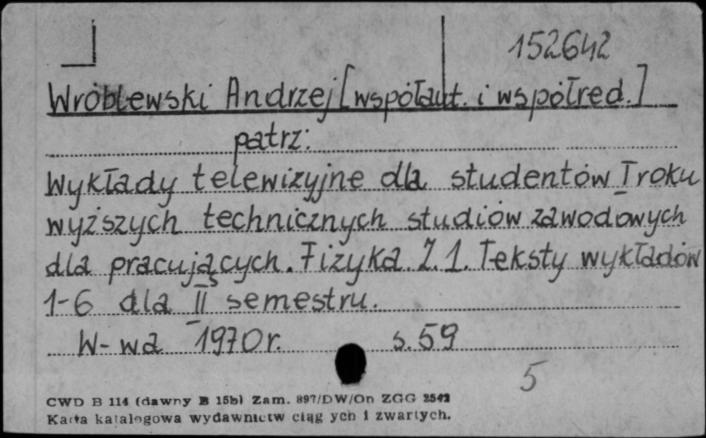 152642
Wróblewski Andrzej [współaut. i współred.]
patrz:
Wykłady telewizyjne dla studentów I roku
wyższych technicznych studiów zawodowych
dla pracujących. Fizyka. Z. 1. Teksty wykładów
1-6 dla II semestru.
W-wa 1970r. s. 59
5
CWD B 114 (dawny B 15b) Zam. 897/DW/On ZGG
Karta katalogowa wydawnictw ciąg ych i zwartych.